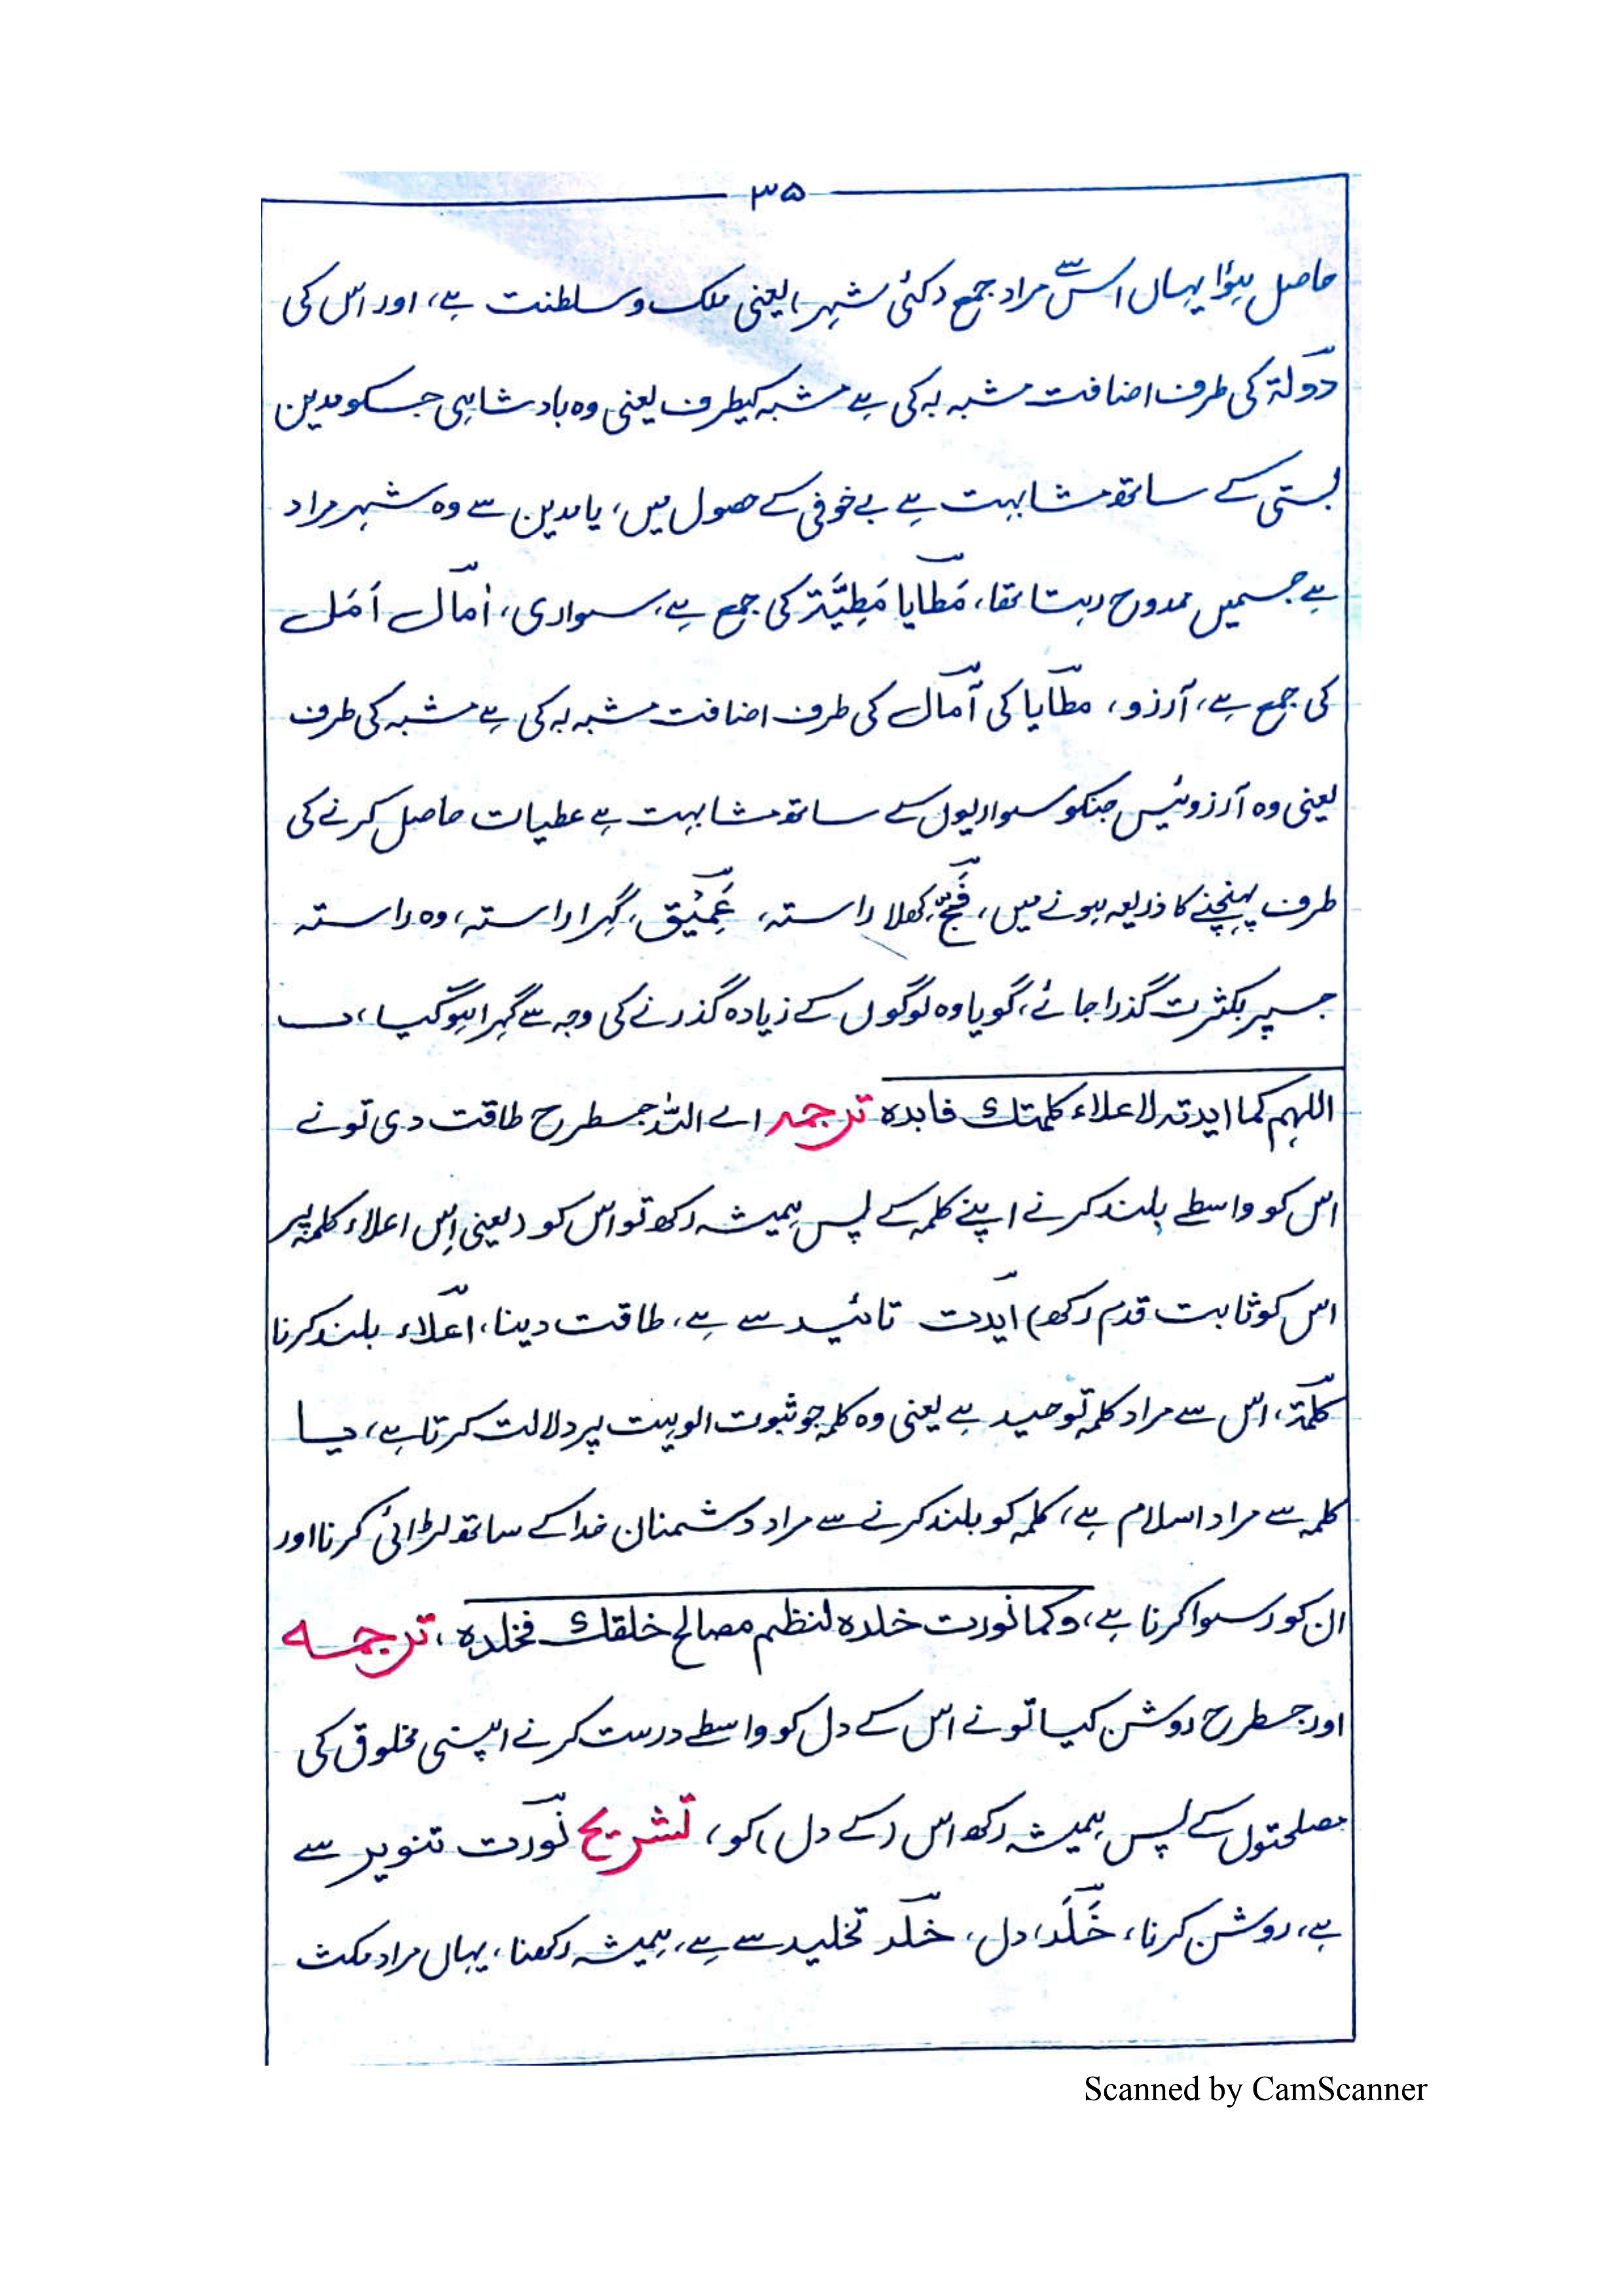 ۳۵
حاصل ہؤا یہاں اس سے مراد جمع (کئی شہر) یعنی ملک و سلطنت ہے، اور اس کی
دولۃ کی طرف اضافت مشبہ بہ کی ہے مشبہ کیطرف یعنی وہ بادشاہی جسکو مدین
بستی کے ساتھ مشابہت ہے بے خوفی کے حصول میں، یا مدین سے وہ شہر مراد
ہے جسمیں ممدوح رہتا تھا، مَطَایا مَطِیَّۃ کی جمع ہے، سواری، اٰمال اَمَل
کی جمع ہے، آرزو، مطایا کی آمال کی طرف اضافت مشبہ بہ کی ہے مشبہ کی طرف
یعنی وہ آرزوئیں جنکو سواریوں کے ساتھ مشابہت ہے عطیات حاصل کرنے کی
طرف پہنچنے کا ذریعہ ہونے میں، فَجّ، کھلا راستہ، عَمِیْق، گہرا راستہ، وہ راستہ
جسپر بکثرت گذرا جائے، گویا وہ لوگوں کے زیادہ گذرنے کی وجہ سے گہرا ہوگیا،
اللہم کما ایدتہ لاعلاء کلمتك فابدہ ترجمہ اے اللہ جسطرح طاقت دی تو نے
اس کو واسطے بلند کرنے اپنے کلمہ کے پس ہمیشہ رکھ تو اس کو (یعنی اِس اعلاء کلمہ پر
اس کو ثابت قدم رکھ) ایدت تائید سے ہے، طاقت دینا، اعلاء بلند کرنا
کلمۃ، اس سے مراد کلمہ توحید ہے یعنی وہ کلمہ جو ثبوت الوہیت پر دلالت کرتا ہے، یا
کلمہ سے مراد اسلام ہے، کلمہ کو بلند کرنے سے مراد دشمنان خدا کے ساتھ لڑائی کرنا اور
ان کو رسوا کرنا ہے، وکما نورت خلدہ لنظم مصالح خلقك فخلدہ، ترجمہ
اور جسطرح روشن کیا تو نے اس کے دل کو واسطے درست کرنے اپنی مخلوق کی
مصلحتوں کے پس ہمیشہ رکھ اس (کے دل) کو، تشریح نورت تنویر سے
ہے، روشن کرنا، خَلَد، دل، خلد تخلید سے ہے، ہمیشہ رکھنا، یہاں مراد مکث
Scanned by CamScanner